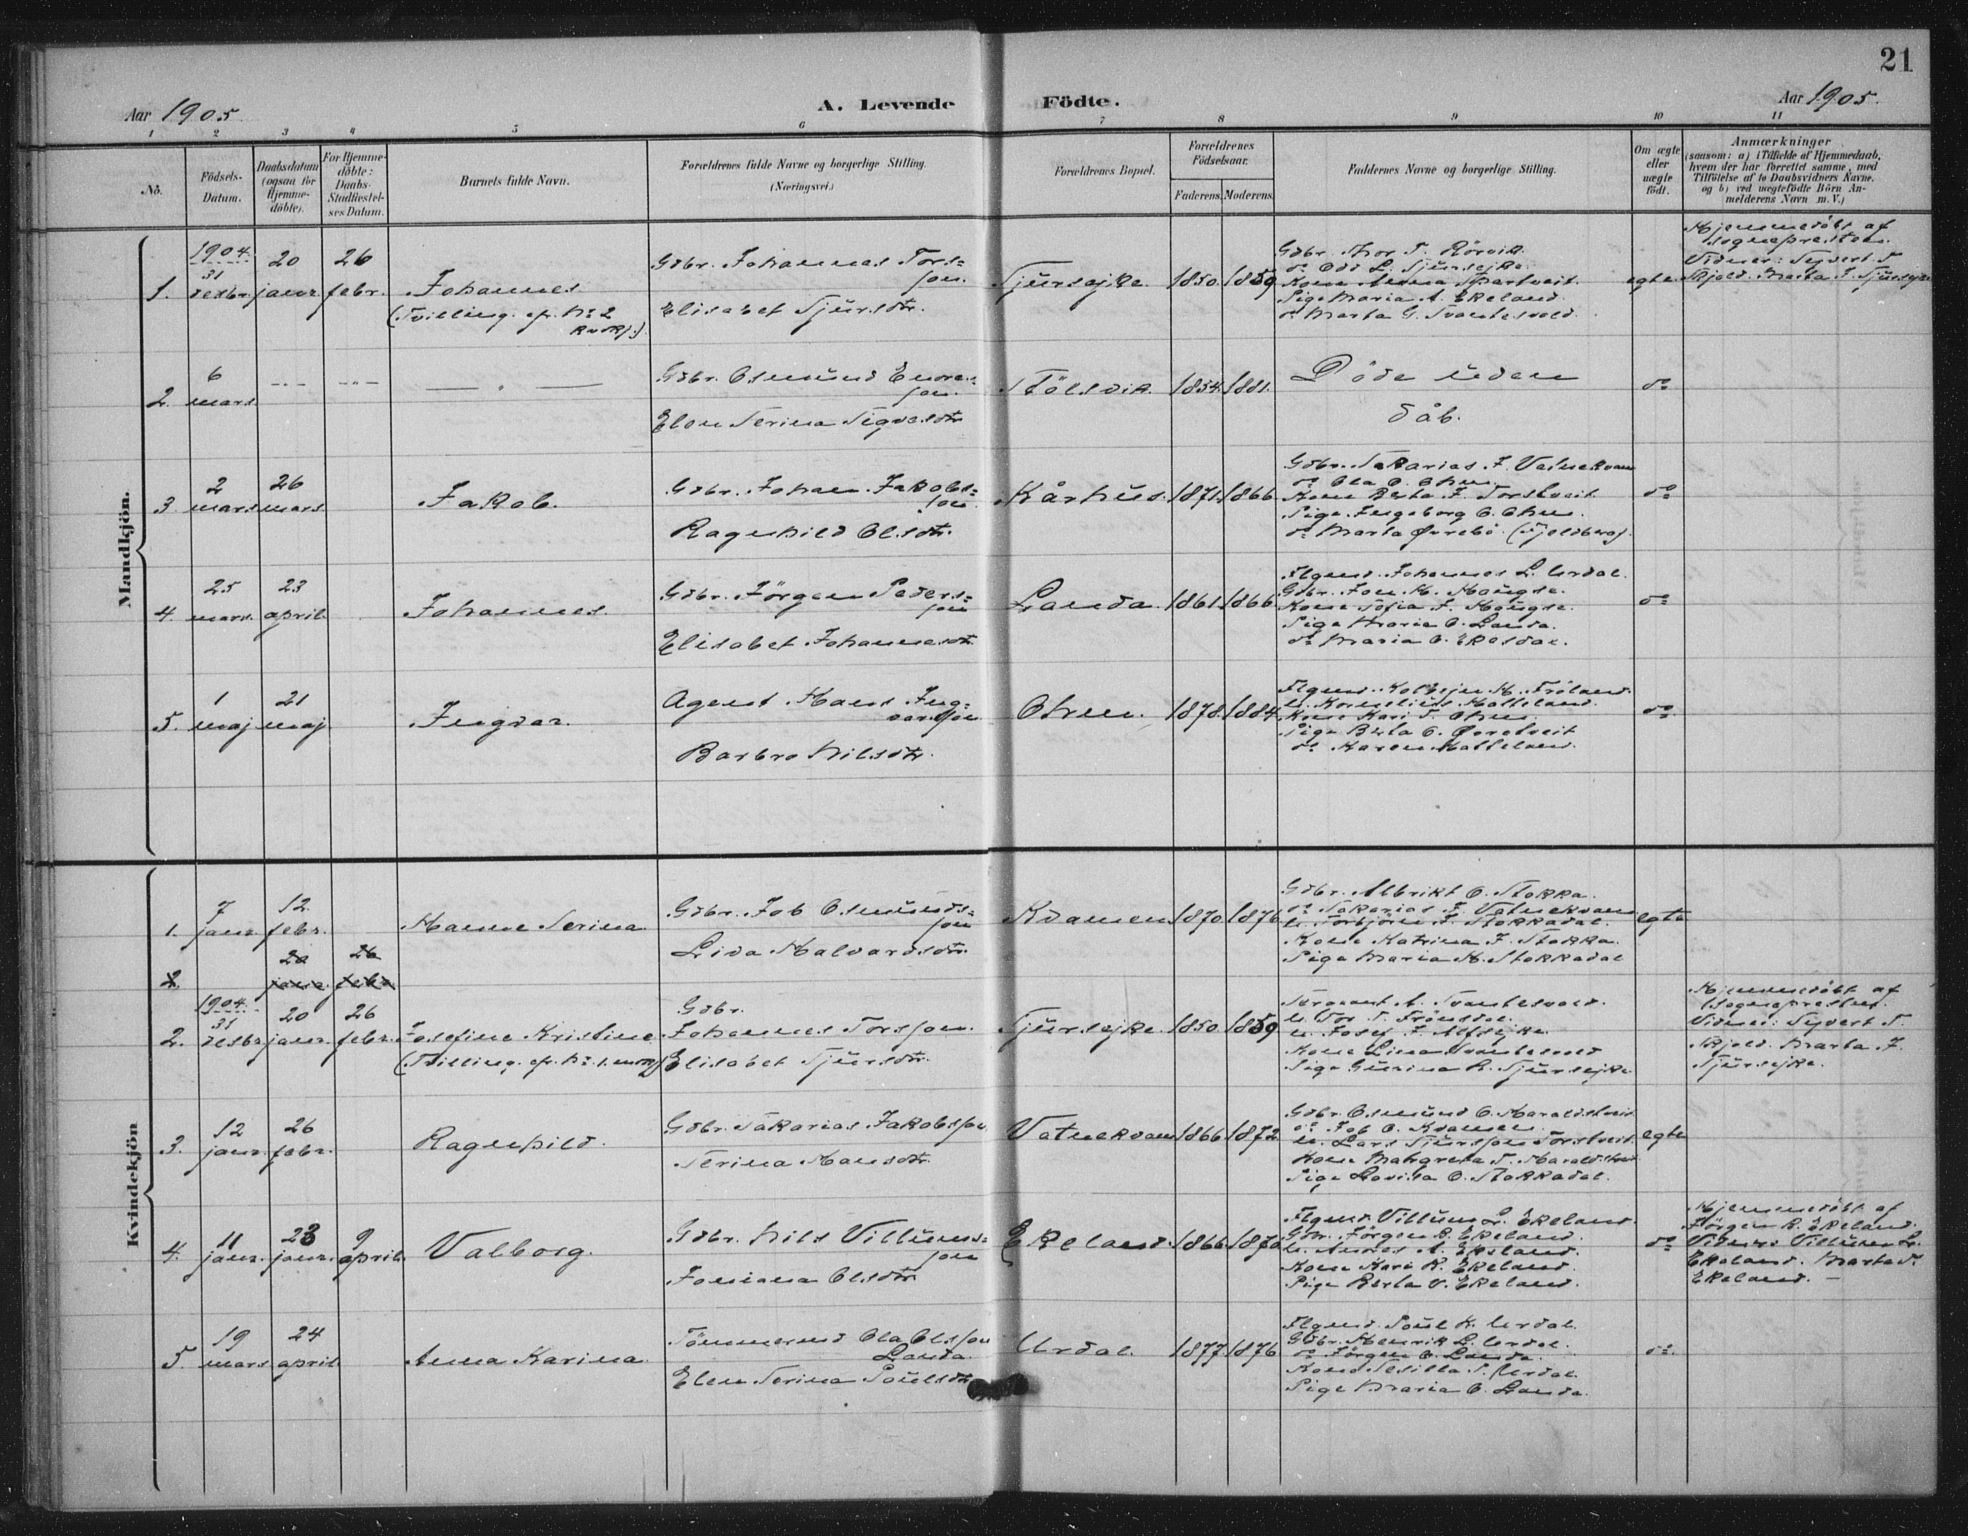 21
Aar 1905.
A. Levende Födte.
Aar 1905.
1 2 3 4 5 6 7 8 9 10 11
No.
Födsels-
Datum.
Daabsdatum
(ogsaa for
Hjemme-
döbte).
For Hjemme-
döbte:
Daabs-
Stadfæstel-
ses Datum.
Barnets fulde Navn.
Forældrenes fulde Navne og borgerlige Stilling.
(Næringsvei.)
Forældrenes Bopæl.
Forældrenes
Födselsaar.
Faderens. Moderens.
Faddernes Navne og borgerlige Stilling.
Om ægte
eller
uægte
födt.
Anmærkninger
(saasom: a) i Tilfælde af Hjemmedaab,
hvem der har forrettet samme, med
Tilföielse af to Daabsvidners Navne.
og b) ved uægtefödte Börn An-
melderens Navn m. V.)
Mandkjön.
1.
1904.
31
desbr.
20
janr.
26
febr.
Johannes
(Tvilling. cfr. No 2
Kvkj.)
Gdbr. Johannes Tors-
son.
Elisabet Sjursdtr.
Sjursejke.
1850.
1859
Gdbr. Thor T. Rörvik
do Odd L. Sjursejke.
Kone Anna Svartveit.
Pige Maria A. Ekeland.
do Marta G. Tvantesvold.
egte
Hjemmedöbt af
sognepresten.
Vidner: Syvert T.
Skjold. Marta J. Sjursejke
2.
6
mars.
Gdbr. Osmund Enoc-
son.
Elen Serina Sigvesdtr.
Stölsvik.
1854.
1881.
Döde uden
dåb.
do
3
2
mars
26
mars
Jakob.
Gdbr. Johan Jakobs-
son.
Ragnhild Olsdtr.
Kårhus.
1871.
1866.
Gdbr. Sakarias J. Vatnekvam
do Ola O. Ohm.
Kone Berta J. Torstveit
Pige Ingeborg O. Ohm.
do Marta Øvrebö. (Fjeldberg).
do
4.
25
mars.
23
april.
Johannes
Gdbr. Jörgen Peders-
son
Elisabet Johannesdtr.
Landa.
1861.
1866.
Ugmd. Johannes L. Urdal.
Gdbr. Jon H. Haugse.
Kone Sofia J. Haugse.
Pige Maria O. Landa.
do Maria O. Ekesdal.
do
5.
1
maj
21
maj
Ingvar.
Agent Hans Ing-
varsson
Barbro Nilsdtr.
Ohm.
1878.
1884.
Kone Kari T. Ohm.
Pige Berta O. Øvretveit
do Karen Matteland.
do
Kvindekjön
1.
7
janr.
12
febr.
Hanne Serina.
Gdbr. Job Osmunds-
son
Lida Halvardsdtr.
Kvamen
1870.
1876.
Gdbr. Albrikt O. Stokka.
do Sakarias J. Vatnekvam
u. Torbjörn J. Stokkadal.
Kone Katrina J. Stokka.
Pige Maria H. Stokkadal
egte
2.
20
janr.
26
febr.
2.
1904.
31
desbr.
20
janr.
26
febr.
Josefine Kristine
(Tvilling. cfr. No 1. mkj.)
Gdbr.
Johannes Torsson.
Elisabet Sjursdtr.
Sjursejke.
1850.
1859
Sergeant A. Tvantesvold.
u. Tor T. Frönsdal.
u. Josef J. Alfsejke.
Kone Lina Tvantesvold
Pige Gurina R. Sjursejke.
Hjemmedöbt af
sognepresten.
Vidner: Syvert T.
Skjold. Marta J.
Sjursejke.
3.
12
janr.
26
febr.
Ragnhild.
Gdbr. Sakarias Jakobsson
Serina Hansdtr.
Vatnekvam
1866.
1872.
Gdbr. Osmund O. Haraldstveit
do Job O. Kvamen.
u. Lars Sjursson Torstveit.
Kone Margreta T. Haraldstveit
Pige Lovisa O. Stokkadal.
egte
4.
11
janr.
23
janr.
9
april.
Valborg.
Gdbr. Nils Villums-
son
Joniana Olsdtr.
Ekeland.
1866.
1870
Ugmd. Villum L. Ekeland.
Gdbr. Jörgen R. Ekeland.
u. Andres A. Ekeland.
Kone Kari R. Ekeland.
Pige Berta V. Ekeland.
do
Hjemmedöbt af
Jörgen R. Ekeland.
Vidner: Villum L.
Ekeland. Marta T.
Ekeland. —
5.
19
mars
24
april
Anna Karina.
Tömmermd Ola Olsson
Landa.
Elen Serina Poulsdtr.
Urdal.
1877.
1876.
Ugmd. Poul K. Urdal.
Gdbr. Henrik L. Urdal.
do Jörgen O. Landa.
Kone Sesilla P. Urdal.
Pige Maria O. Landa.
do